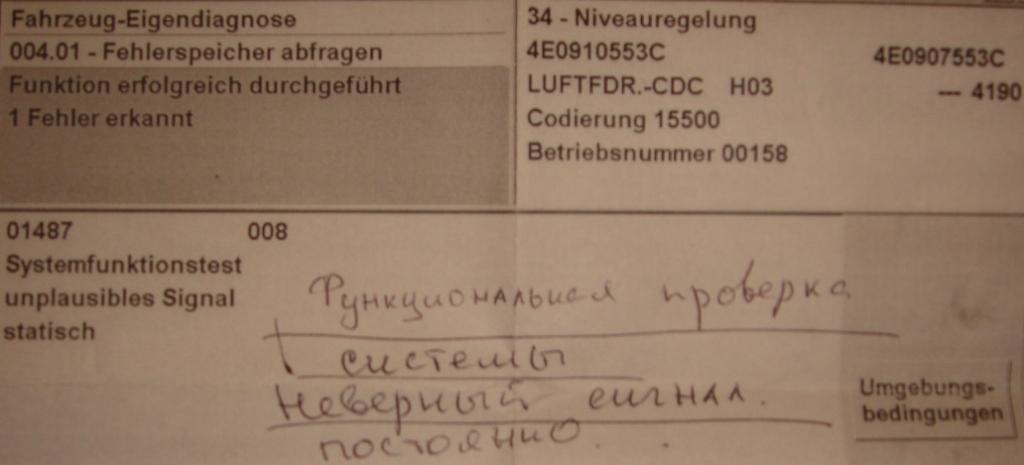 Fahrzeug-Eigendiagnose
004.01 - Fehlerspeicher abfragen
Funktion erfolgreich durchgeführt
1 Fehler erkannt
34 - Niveauregelung
4E0910553C 4E0907553C
LUFTFDR.-CDC H03 --- 4190
Codierung 15500
Betriebsnummer 00158
01487 008
Systemfunktionstest
unplausibles Signal
statisch
Функциональная проверка
системы
Неверный сигнал.
постоянно.
Umgebungs-
bedingungen